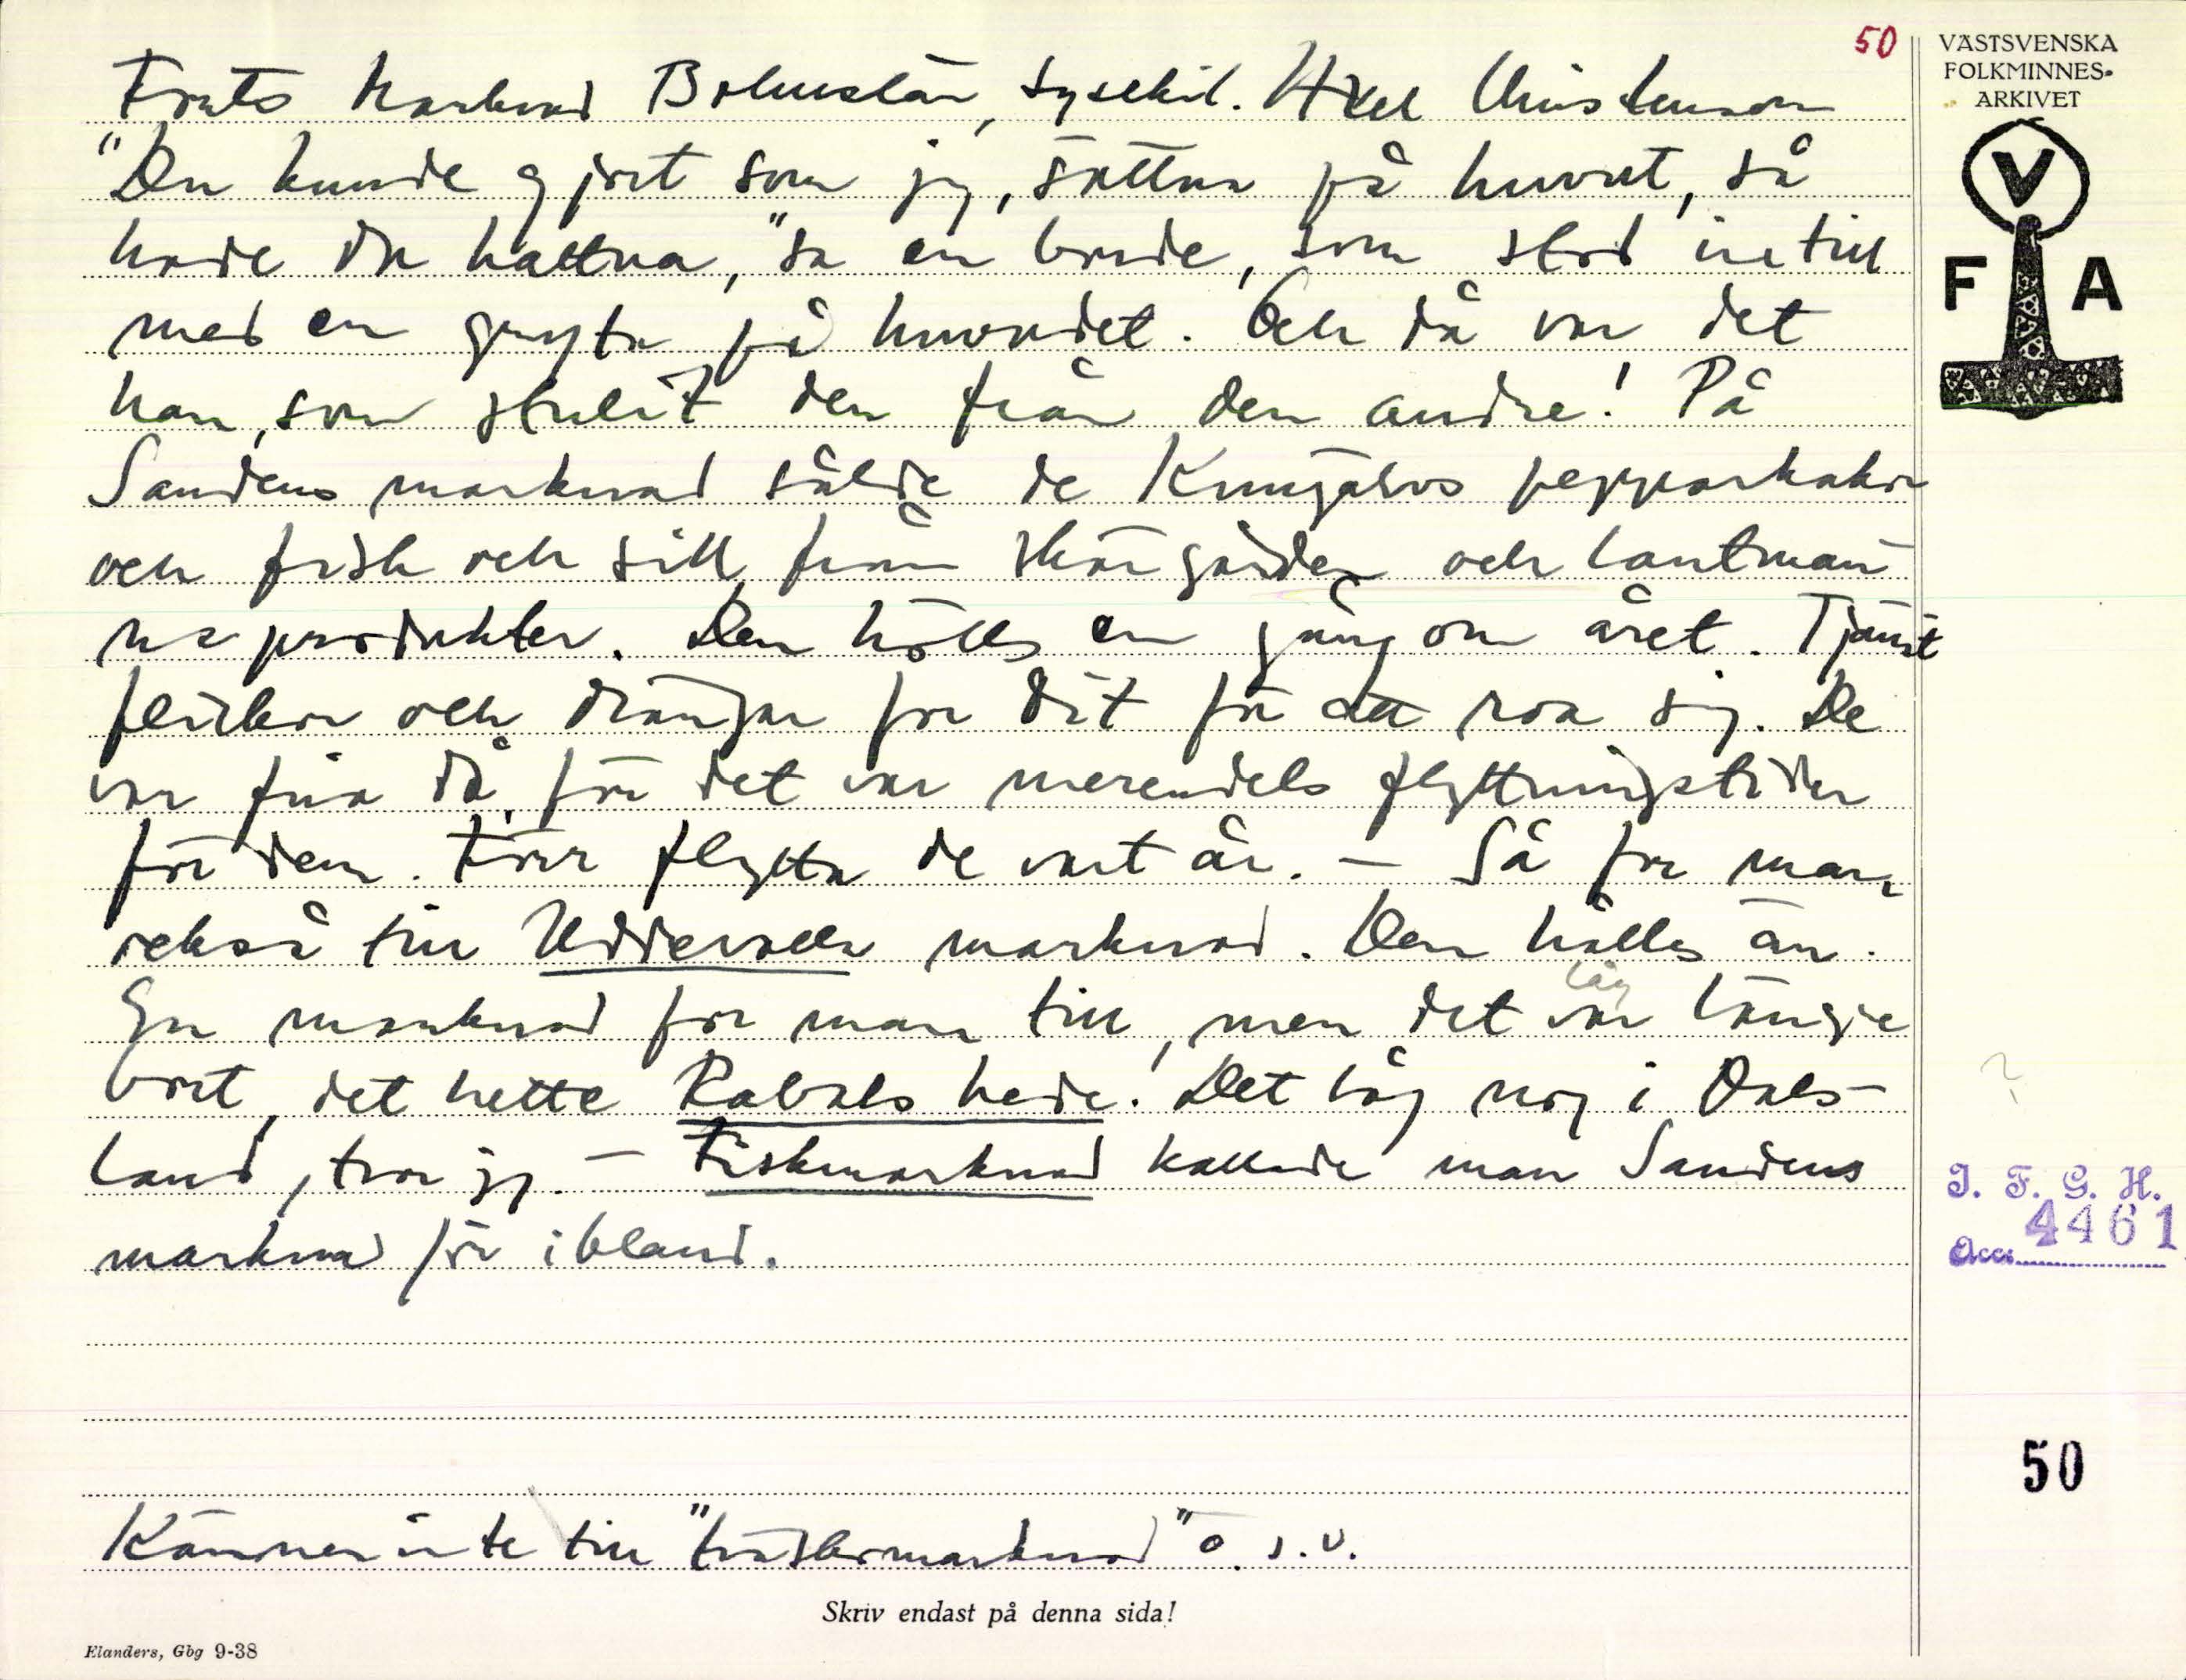 50
VÄSTSVENSKA
FOLKMINNES-
ARKIVET
V
F A
Forts Marknad Bohuslän, Lysekil. Axel Christenson
"Du kunde gjort som jag, sättna på huvut, så
hade du hattna," sa en bonde, som stod intill
med en gryta på huvudet. Och då var det
han, som stulit den från den andre! På
Sandens marknad sålde de Kungälvs pepparkakor
och fisk och sill från skärgården och lantmän
na produkter. Den hölls en gång om året. Tjänst
flickor och drängar for dit för att roa sig. De
var fria då, för det var merendels flyttningstider
för dem. Förr flytta de vart år. – Så for man
också till Uddevalla marknad. Den hålles än.
låg
En marknad for man till, men det var länge
bort, det hette Rabals hede. Det låg nog i Dals-
land, tror jg. – Fiskmarknad kallade man Sandens
marknad för ibland.
?
I. F. G. H.
Acc. 4461
50
Känner inte till "marknad" o. s. v.
Skriv endast på denna sida!
Elanders, Gbg 9-38